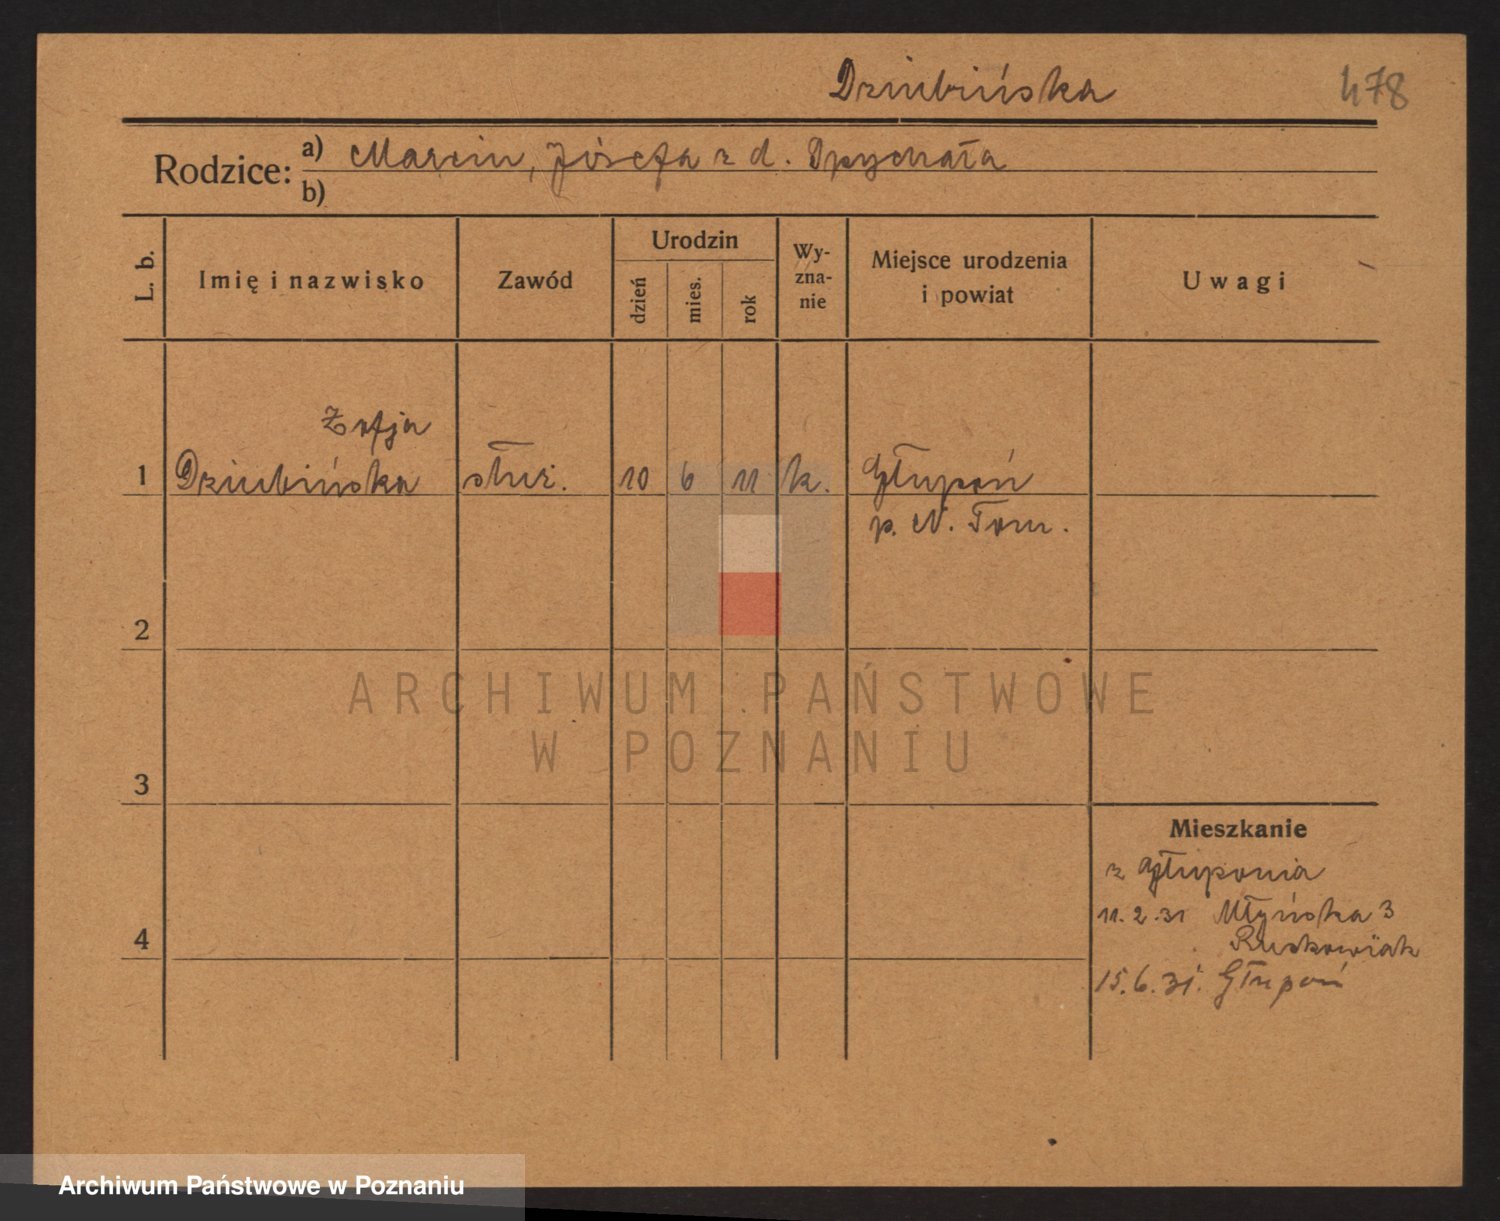 Dziubińska 478
Rodzice: a) Marcin, Józefa z d. Spychała
b)
L. b. Imię i nazwisko Zawód Urodzin dzień mies. rok Wy-zna-nie Miejsce urodzenia i powiat Uwagi
Zofja
1 Dziubińska służ. 10 6 11 k. Głupoń
p. N. Tom.
2
ARCHIWUM PAŃSTWOWE
W POZNANIU
3
Mieszkanie
z Głuponia
11.2.31 Młyńska 3
4 Ruskowiak
15.6.31. Głupoń
Archiwum Państwowe w Poznaniu